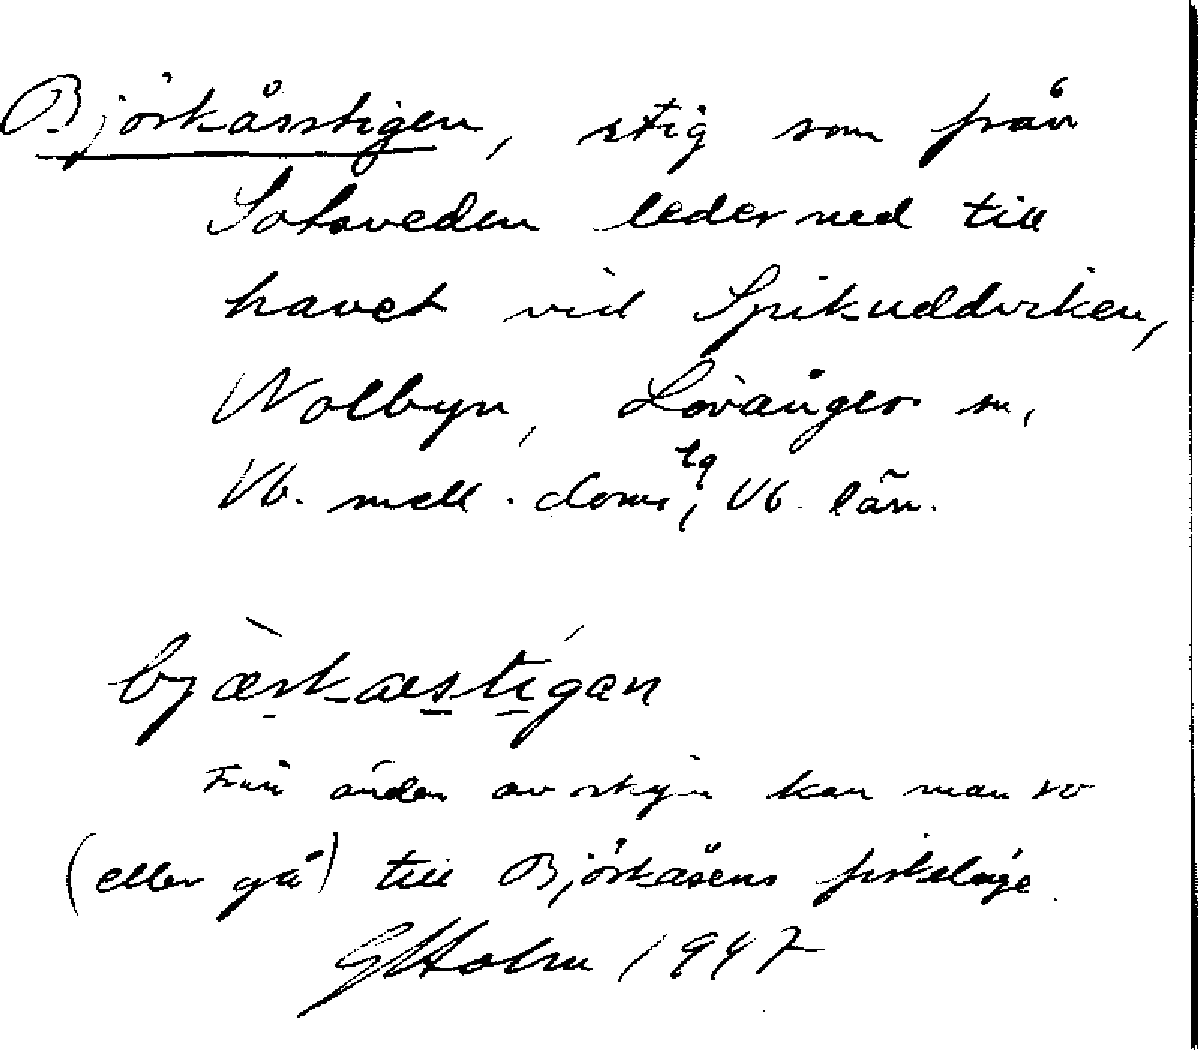 Björkåsstigen, stig som från
Sotsveden leder ned till
havet vid Spikuddviken,
Nolbyn, Lövånger sn,
Vb. mell. doms, tg Vb. län.
bjærkæstigen
Från änden av stigen kan man ro
(eller gå) till Björkåsens fiskeläge.
G Holm 1947